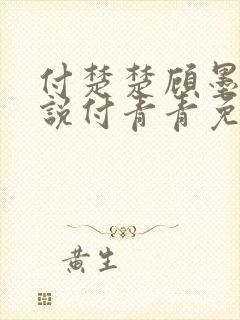 付楚楚顾墨
說付青青免
黄生